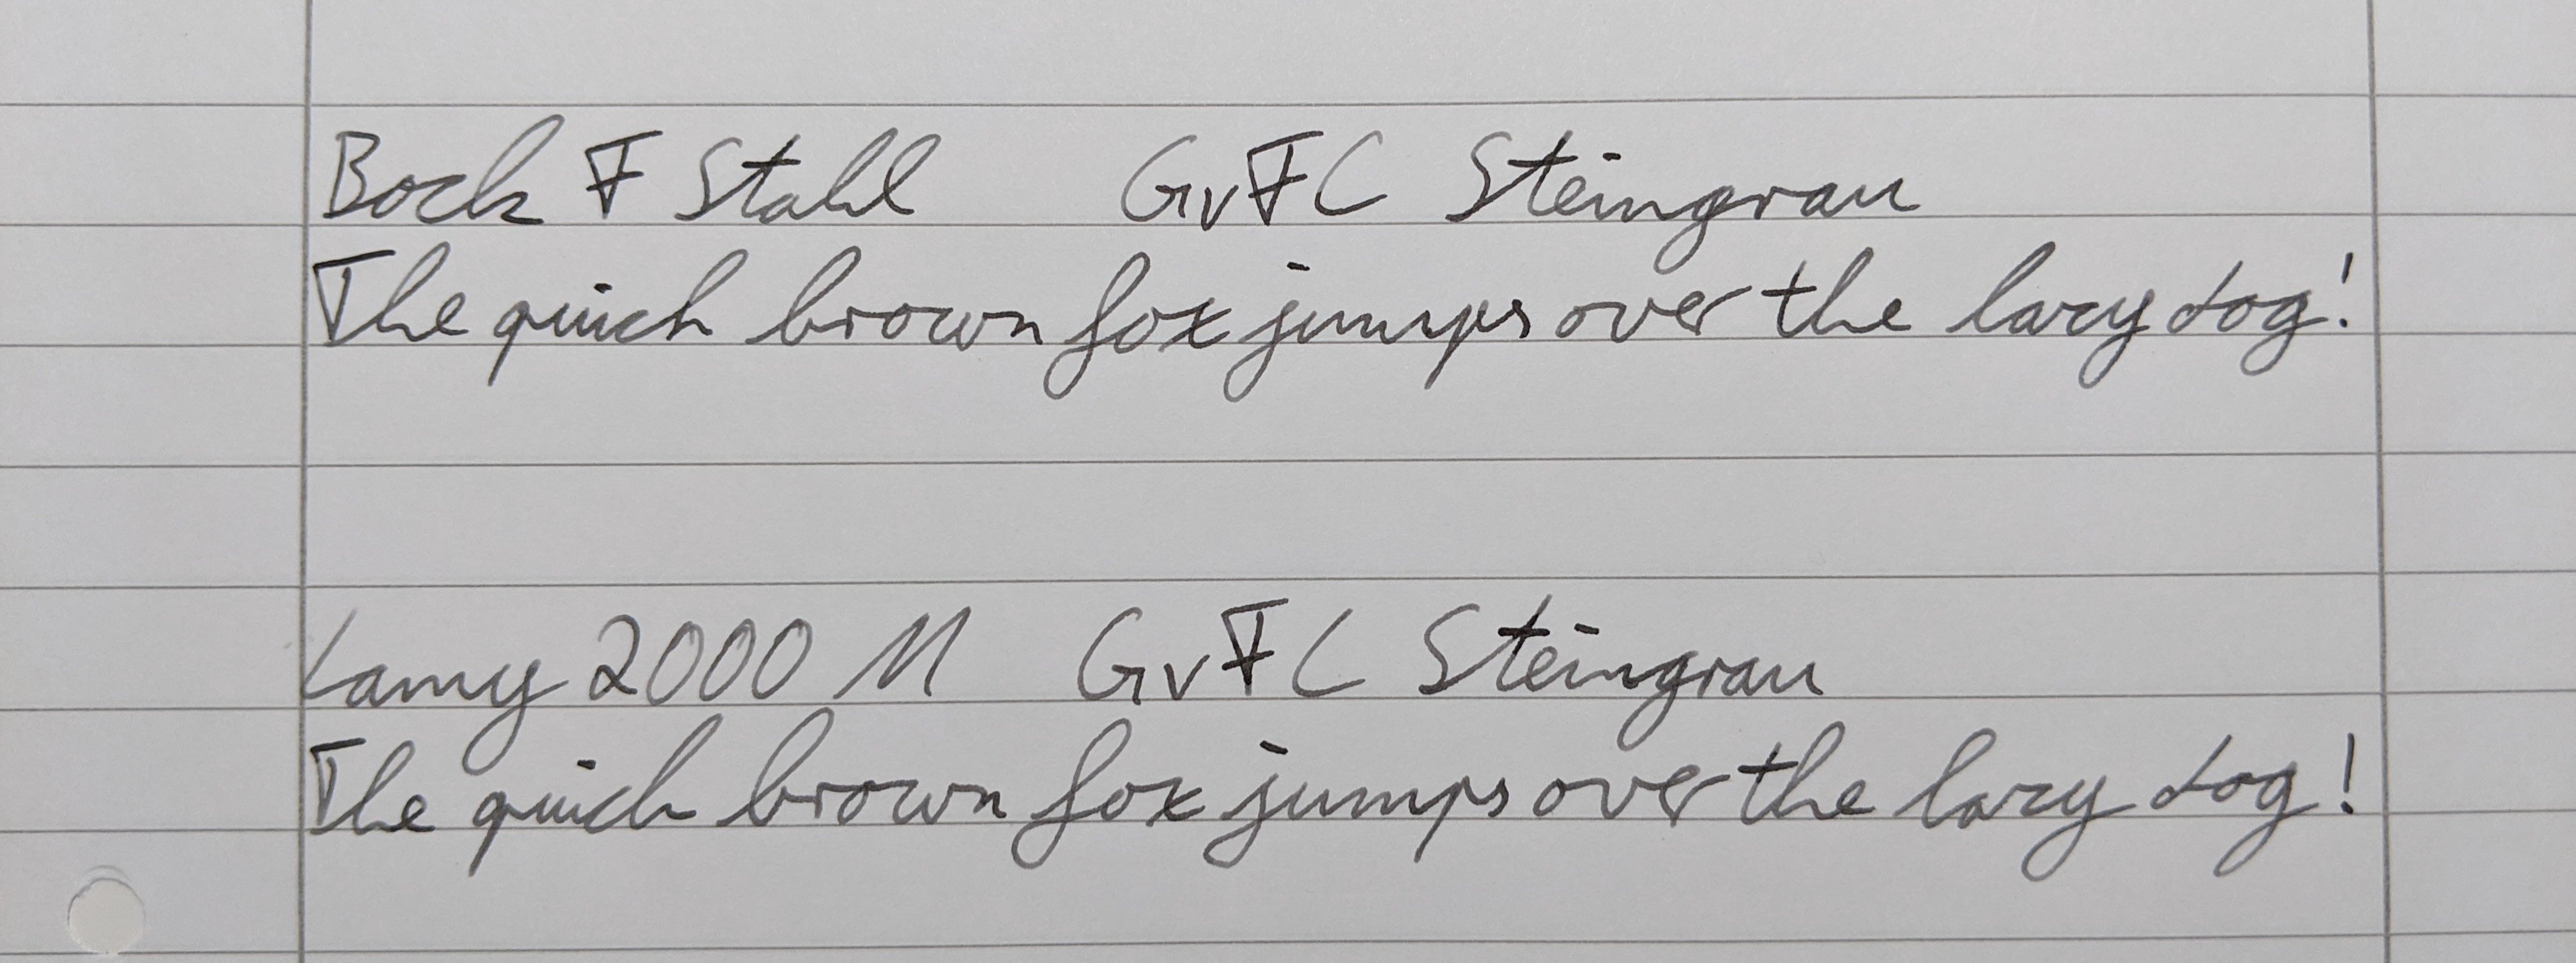 Bock F Stahl GvFC Steingrau
The quick brown fox jumps over the lazy dog!
Lamy 2000 M GvFC Steingrau
The quick brown fox jumps over the lazy dog!